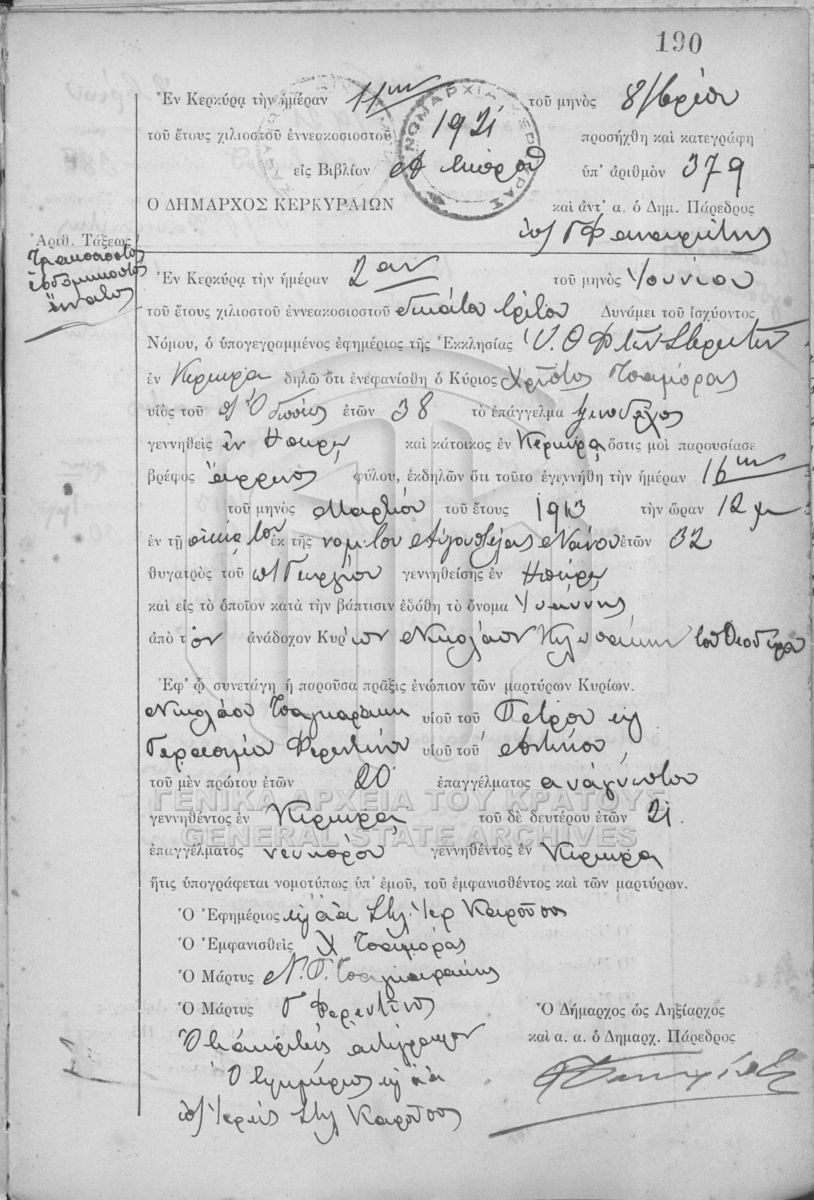 190
Ἐν Κερκύρᾳ τὴν ἡμέραν 11ην τοῦ μηνὸς 8/βρίου
τοῦ ἔτους χιλιοστοῦ ἐννεακοσιοστοῦ 1921 προσήχθη καὶ κατεγράφη
εἰς Βιβλίον ὑπ' ἀριθμὸν 379
Ο ΔΗΜΑΡΧΟΣ ΚΕΡΚΥΡΑΙΩΝ καὶ ἀντ' α. ὁ Δημ. Πάρεδρος
ΝΟΜΑΡΧΙΑ ΚΕΡΚΥΡΑΣ
Ἀριθ. Τάξεως
τριακοσιοστὸς
ἑβδομηκοστὸς
ἔννατος
Ἐν Κερκύρᾳ τὴν ἡμέραν 2αν τοῦ μηνὸς Ἰουνίου
τοῦ ἔτους χιλιοστοῦ ἐννεακοσιοστοῦ δεκάτου τρίτου Δυνάμει τοῦ ἰσχύοντος
Νόμου, ὁ ὑπογεγραμμένος ἐφημέριος τῆς Ἐκκλησίας
ἐν Κερκύρᾳ δηλῶ ὅτι ἐνεφανίσθη ὁ Κύριος Χρῆστος Τσαμόρας
υἱὸς τοῦ ἐτῶν 38 τὸ ἐπάγγελμα ξενοδόχος
γεννηθεὶς ἐν Ἠπείρῳ καὶ κάτοικος ἐν Κερκύρᾳ ὅστις μοὶ παρουσίασε
βρέφος ἄρρενος φύλου, ἐκδηλῶν ὅτι τοῦτο ἐγεννήθη τὴν ἡμέραν 16ην
τοῦ μηνὸς Μαρτίου τοῦ ἔτους 1913 τὴν ὥραν 12
ἐν τῇ οἰκίᾳ του ἐκ τῆς νομ. του Ἀγαθούλας Νάνου ἐτῶν 32
θυγατρὸς τοῦ Γεωργίου γεννηθείσης ἐν Ἠπείρῳ
καὶ εἰς τὸ ὁποῖον κατὰ τὴν βάπτισιν ἐδόθη τὸ ὄνομα Ἰωάννης
ἀπὸ τὸν ἀνάδοχον Κύριον Νικόλαον τοῦ Θεοδώρου
Ἐφ' ᾧ συνετάγη ἡ παροῦσα πρᾶξις ἐνώπιον τῶν μαρτύρων Κυρίων.
Νικολάου Τσαγκαράκη υἱοῦ τοῦ Πέτρου καὶ
Γερασίμου Φερεντίνου υἱοῦ τοῦ
τοῦ μὲν πρώτου ἐτῶν 20 ἐπαγγέλματος ἀναγνώστου
ΓΕΝΙΚΑ ΑΡΧΕΙΑ ΤΟΥ ΚΡΑΤΟΥΣ
γεννηθέντος ἐν Κερκύρᾳ τοῦ δὲ δευτέρου ἐτῶν 21.
GENERAL STATE ARCHIVES
ἐπαγγέλματος νεωκόρου γεννηθέντος ἐν Κερκύρᾳ
ἥτις ὑπογράφεται νομοτύπως ὑπ' ἐμοῦ, τοῦ ἐμφανισθέντος καὶ τῶν μαρτύρων.
Ὁ Ἐφημέριος Καροῦσος
Ὁ Ἐμφανισθεὶς Χ Τσαμόρας
Ὁ Μάρτυς Ν. Π. Τσαγκαράκης
Ὁ Μάρτυς Γ Φερεντῖνος Ὁ Δήμαρχος ὡς Ληξίαρχος
καὶ α. α. ὁ Δημαρχ. Πάρεδρος
Ὁ ἐφημέριος
Ἱερεὺς Καροῦσος